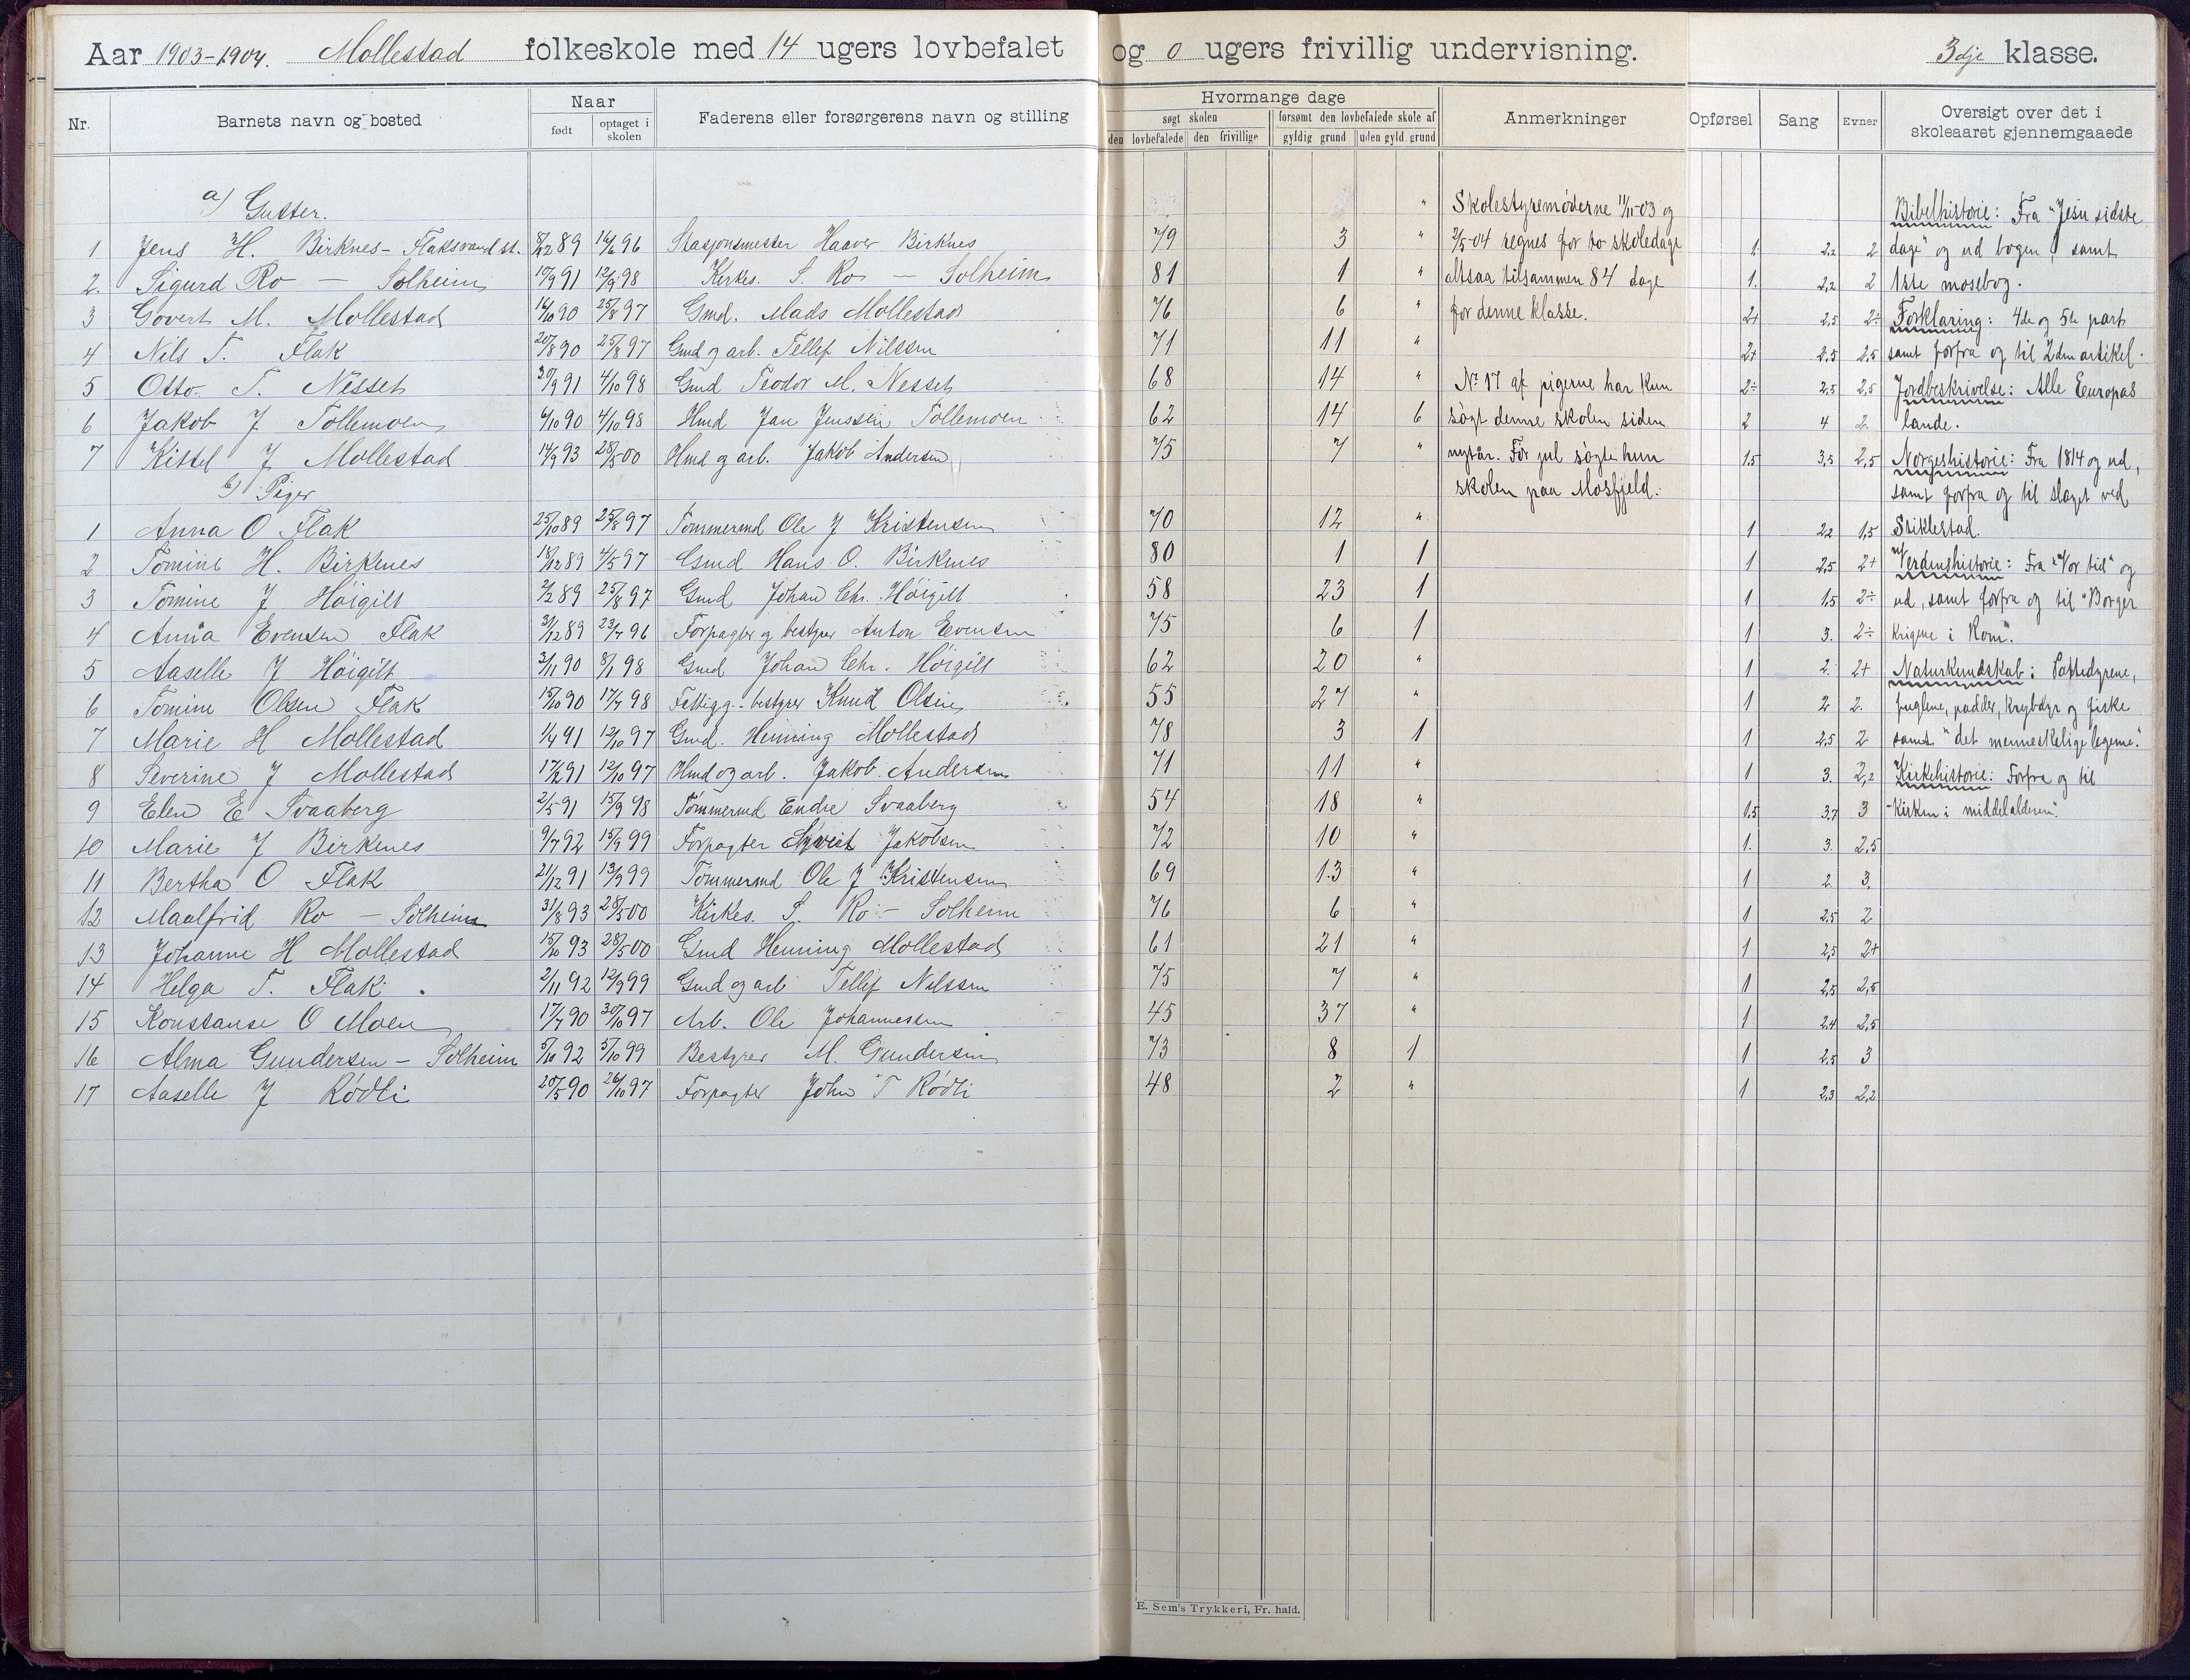 Aar 1903-1904. Mollestad folkeskole med 14 ugers lovbefalet og 0 ugers frivillig undervisning. 3dje klasse.
Nr. Barnets navn og bosted Naar født optaget i skolen Faderens eller forsørgerens navn og stilling Hvormange dage søgt skolen den lovbefalede den frivillige forsømt den lovbefalede skole af gyldig grund uden gyld. grund Anmerkninger Opførsel Sang Evner Oversigt over det i skoleaaret gjennemgaaede
a) Gutter.
1 Jens H. Birknes - Flaksvand st. 8/12 89 16/6 96 Stasjonsmester Haaver Birknes 79 3 " 1. 2,2 2
2. Sigurd Ro — Solheim 10/9 91 12/9 98 Kirkes. S. Ro — Solheim 81 1 " 1. 2,2 2
3 Govert M. Mollestad 16/10 90 25/8 97 Gmd. Mads Mollestad 76 6 " 2+ 2,5 2÷
4 Nils T. Flak 20/8 90 25/8 97 Gmd og arb. Tellef Nilssen 71 11 " 2+ 2,5 2,5
5 Otto. T. Nesset 30/9 91 4/10 98 Gmd Teodor M. Nesset 68 14 " 2÷ 2,5 2,5
6 Jakob J Tollemoen 6/10 90 4/10 98 Hmd Jan Jenssen Tollemoen 62 14 6 2 4 2
7 Kittel J Mollestad 14/9 93 28/5 00 Hmd og arb. Jakob Andersen 75 7 " 1,5 3,5 2,5
b) Piger
1 Anna O Flak 25/10 89 25/8 97 Tømmermd Ole J Kristensen 70 12 " 1 2,2 1,5
2 Tomine H. Birknes 18/12 89 4/5 97 Gmd Hans O. Birknes 80 1 1 1 2,5 2+
3 Tomine J Høigilt 2/2 89 25/8 97 Gmd Johan Chr. Høigilt 58 23 1 1 1,5 2÷
4 Anna Evensen Flak 31/12 89 23/7 96 Forpagter og bestyrer Anton Evensen 75 6 1 1 3. 2÷
5 Aaselle J Høigilt 3/11 90 8/1 98 Gmd Johan Chr. Høigilt 62 20 " 1 2. 2+
6 Tomine Olsen Flak 15/10 90 17/7 98 Fattigg.-bestyrer Knud Olsen 55 27 " 1 2 2.
7 Marie H Mollestad 1/4 91 12/10 97 Gmd. Henning Mollestad 78 3 1 1 2,5 2
8 Severine J Mollestad 17/2 91 12/10 97 Hmd og arb. Jakob Andersen 71 11 " 1 3. 2,2
9 Elen E Svaaberg 2/5 91 15/9 98 Tømmermd Endre Svaaberg 54 18 " 1,5 3,7 3
10 Marie J Birknes 9/7 92 15/9 99 Forpagter Jakobsen 72 10 " 1. 3. 2,5
11 Bertha O Flak 21/12 91 13/9 99 Tømmermd Ole J Kristensen 69 13 " 1 2 3.
12 Maalfrid Ro — Solheim 31/8 93 28/5 00 Kirkes. S. Ro — Solheim 76 6 " 1 2,5 2
13 Johanne H Mollestad 15/10 93 28/5 00 Gmd Henning Mollestad 61 21 " 1 2,5 2+
14 Helga T. Flak. 2/11 92 12/9 99 Gmd og arb Tellef Nilssen 75 7 " 1 2,5 2,5
15 Konstanse O Moen 17/7 90 30/10 97 Arb. Ole Johannessen 45 37 " 1 2,4 2,5
16 Alma Gundersen - Solheim 5/10 92 5/10 99 Bestyrer M. Gundersen 73 8 1 1 2,5 3
17 Aaselle J Rødli 20/5 90 26/10 97 Forpagter John T Rødli 48 2 " 1 2,3 2,2
Skolestyremøderne 11/11-03 og
2/5-04 regnes for to skoledage
altsaa tilsammen 84 dage
for denne klasse.
No 17 af pigerne har kun
søgt denne skolen siden
nytår. Før jul søgte hun
skolen paa Mosfjeld.
Bibelhistorie: Fra "Jesu sidste
dage" og ud bogen samt
1ste mosebog.
Forklaring: 4de og 5te part
samt forfra og til 2den artikel.
Jordbeskrivelse: Alle Europas
lande.
Norgeshistorie: Fra 1814 og ud,
samt forfra og til slaget ved
Stiklestad.
Verdenshistorie: Fra "Vor tid" og
ud, samt forfra og til "Borger
krigene i Rom".
Naturkundskab: Pattedyrene,
fuglene, padder, krybdyr og fiske
samt "det menneskelige legeme."
Kirkehistorie: Forfra og til
"Kirken i middelalderen".
E. Sem's Trykkeri, Fr. hald.